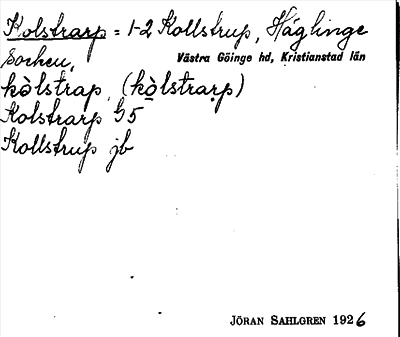 Kolstrarp = 1-2 Kollstrup, Häglinge
Socken, Västra Göinge hd, Kristianstad län
kòlstrap, (kò̲lstrarp)
Kolstrarp G5
Kollstrup jb
JÖRAN SAHLGREN 1926